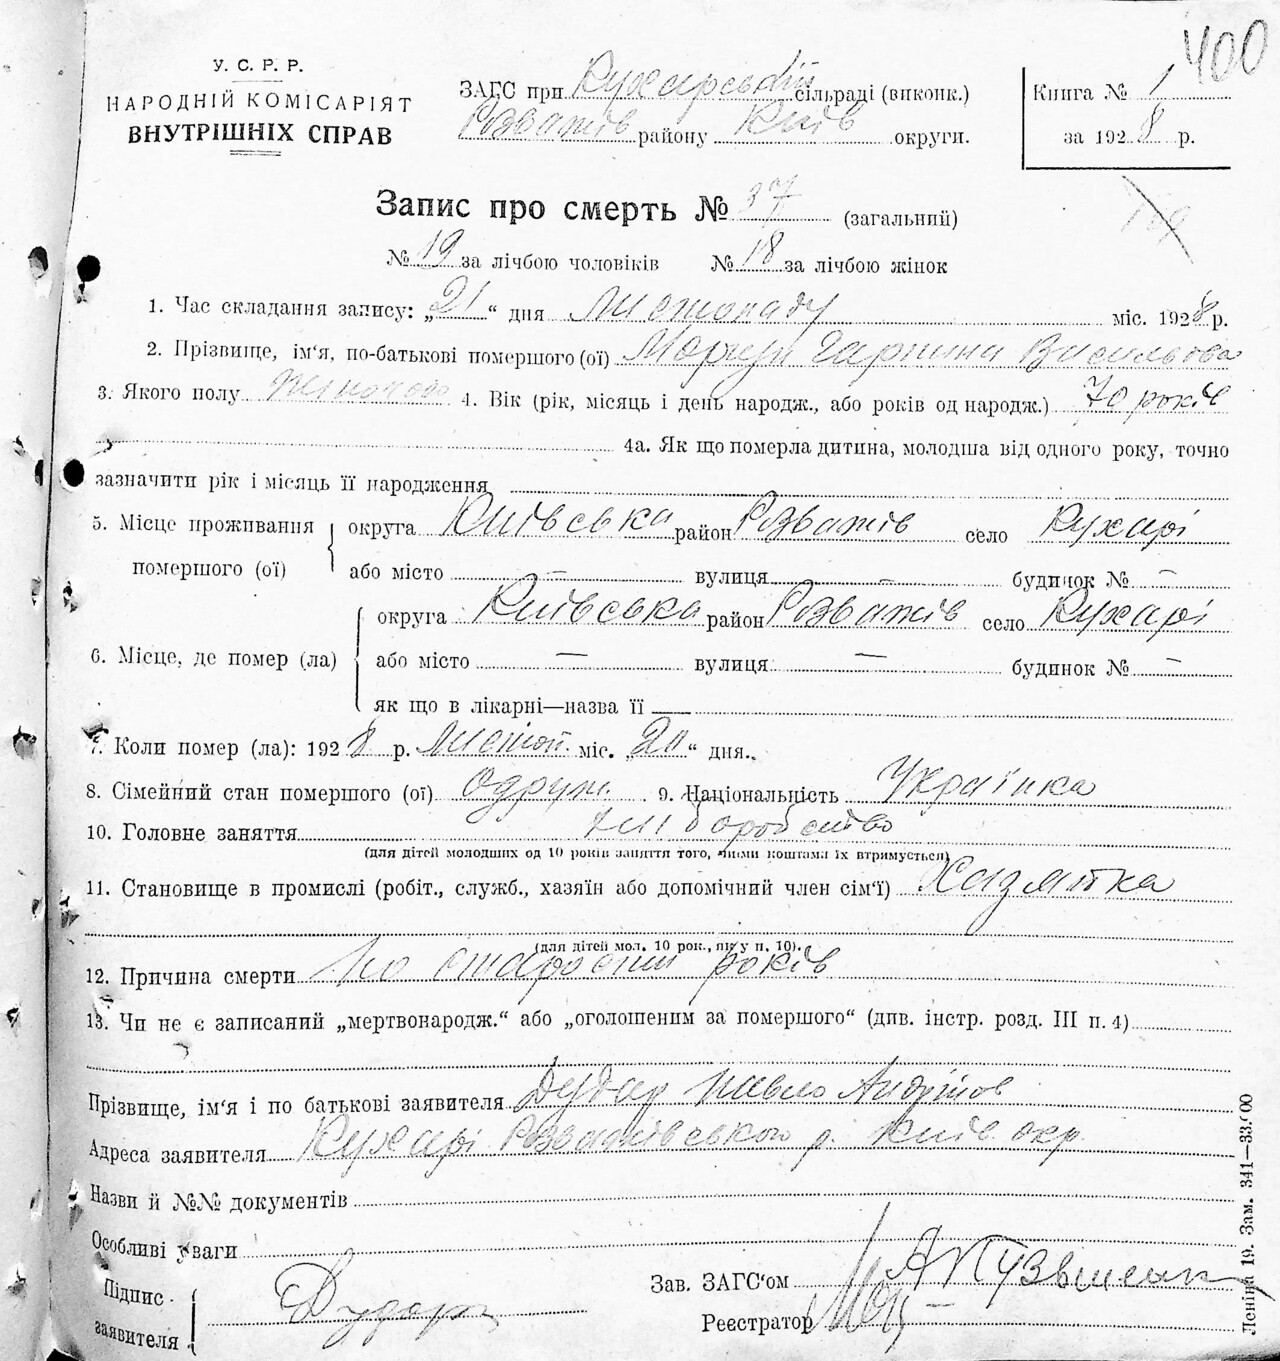 400
У. С. Р. Р.
НАРОДНІЙ КОМІСАРІЯТ
ВНУТРІШНІХ СПРАВ
ЗАГС при Кухарській сільраді (виконк.)
Розважів району Київ округи.
Книга № 1
за 1928 р.
Запис про смерть № 37 (загальний)
169
№ 19 за лічбою чоловіків № 18 за лічбою жінок
1. Час складання запису: „21“ дня Листопаду міс. 1928 р.
2. Прізвище, ім‘я, по-батькові помершого (ої) Васильова
3. Якого полу Жіночого 4. Вік (рік, місяць і день народж., або років од народж.) 70 років
4а. Як що померла дитина, молодша від одного року, точно
зазначити рік і місяць її народження
5. Місце проживання помершого (ої) округа Київська район Розважів село Кухарі
або місто — вулиця — будинок № —
6. Місце, де помер (ла) округа Київська район Розважів село Кухарі
або місто — вулиця — будинок № —
як що в лікарні—назва її —
7. Коли помер (ла): 1928 р. Листоп. міс. „20“ дня.
8. Сімейний стан помершого (ої) одруж. 9. Національність Українка
10. Головне заняття хліборобство
(для дітей молодших од 10 років заняття того, чиїми коштами їх втримується)
11. Становище в промислі (робіт., служб., хазяїн або допомічний член сім‘ї) Хазяйка
(для дітей мол. 10 рок., як у п. 10).
12. Причина смерти По старости років
13. Чи не є записаний „мертвонародж.“ або „оголошеним за помершого“ (див. інстр. розд. III п. 4)
Прізвище, ім‘я і по батькові заявителя Дудар Павло Андріїв
Адреса заявителя Кухарі Розважівського р. Київ. окр.
Назви й №№ документів
Особливі уваги
Підпис заявителя Дудар
Зав. ЗАГС‘ом
Реєстратор
Леніна 19. Зам. 341—33.000